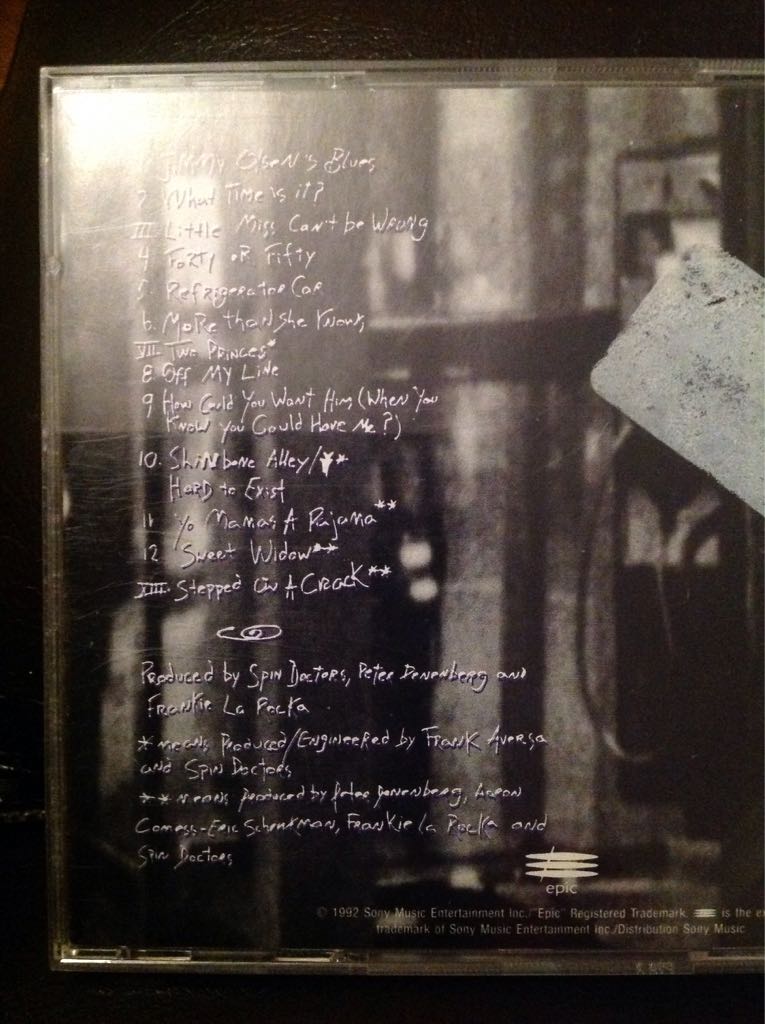 1 Jimmy Olsen's Blues
2 What Time is it?
III Little Miss Can't be Wrong
4 Forty or Fifty
5. Refrigerator Car
6. More than She Knows
VII. Two Princes*
8 Off My Line
9 How Could You Want Him (When You
Know you Could Have Me?)
10. Shinbone Alley/*
Hard to Exist
11 Yo Mamas A Pajama**
12 Sweet Widow**
XIII. Stepped On A Crack**
Produced by Spin Doctors, Peter Denenberg and
Frankie La Rocka
* means Produced/Engineered by Frank Aversa
and Spin Doctors
** means produced by Peter Denenberg, Aaron
Comess-Eric Schenkman, Frankie La Rocka and
Spin Doctors
epic
© 1992 Sony Music Entertainment Inc./"Epic" Registered Trademark. is the
trademark of Sony Music Entertainment Inc./Distribution Sony Music